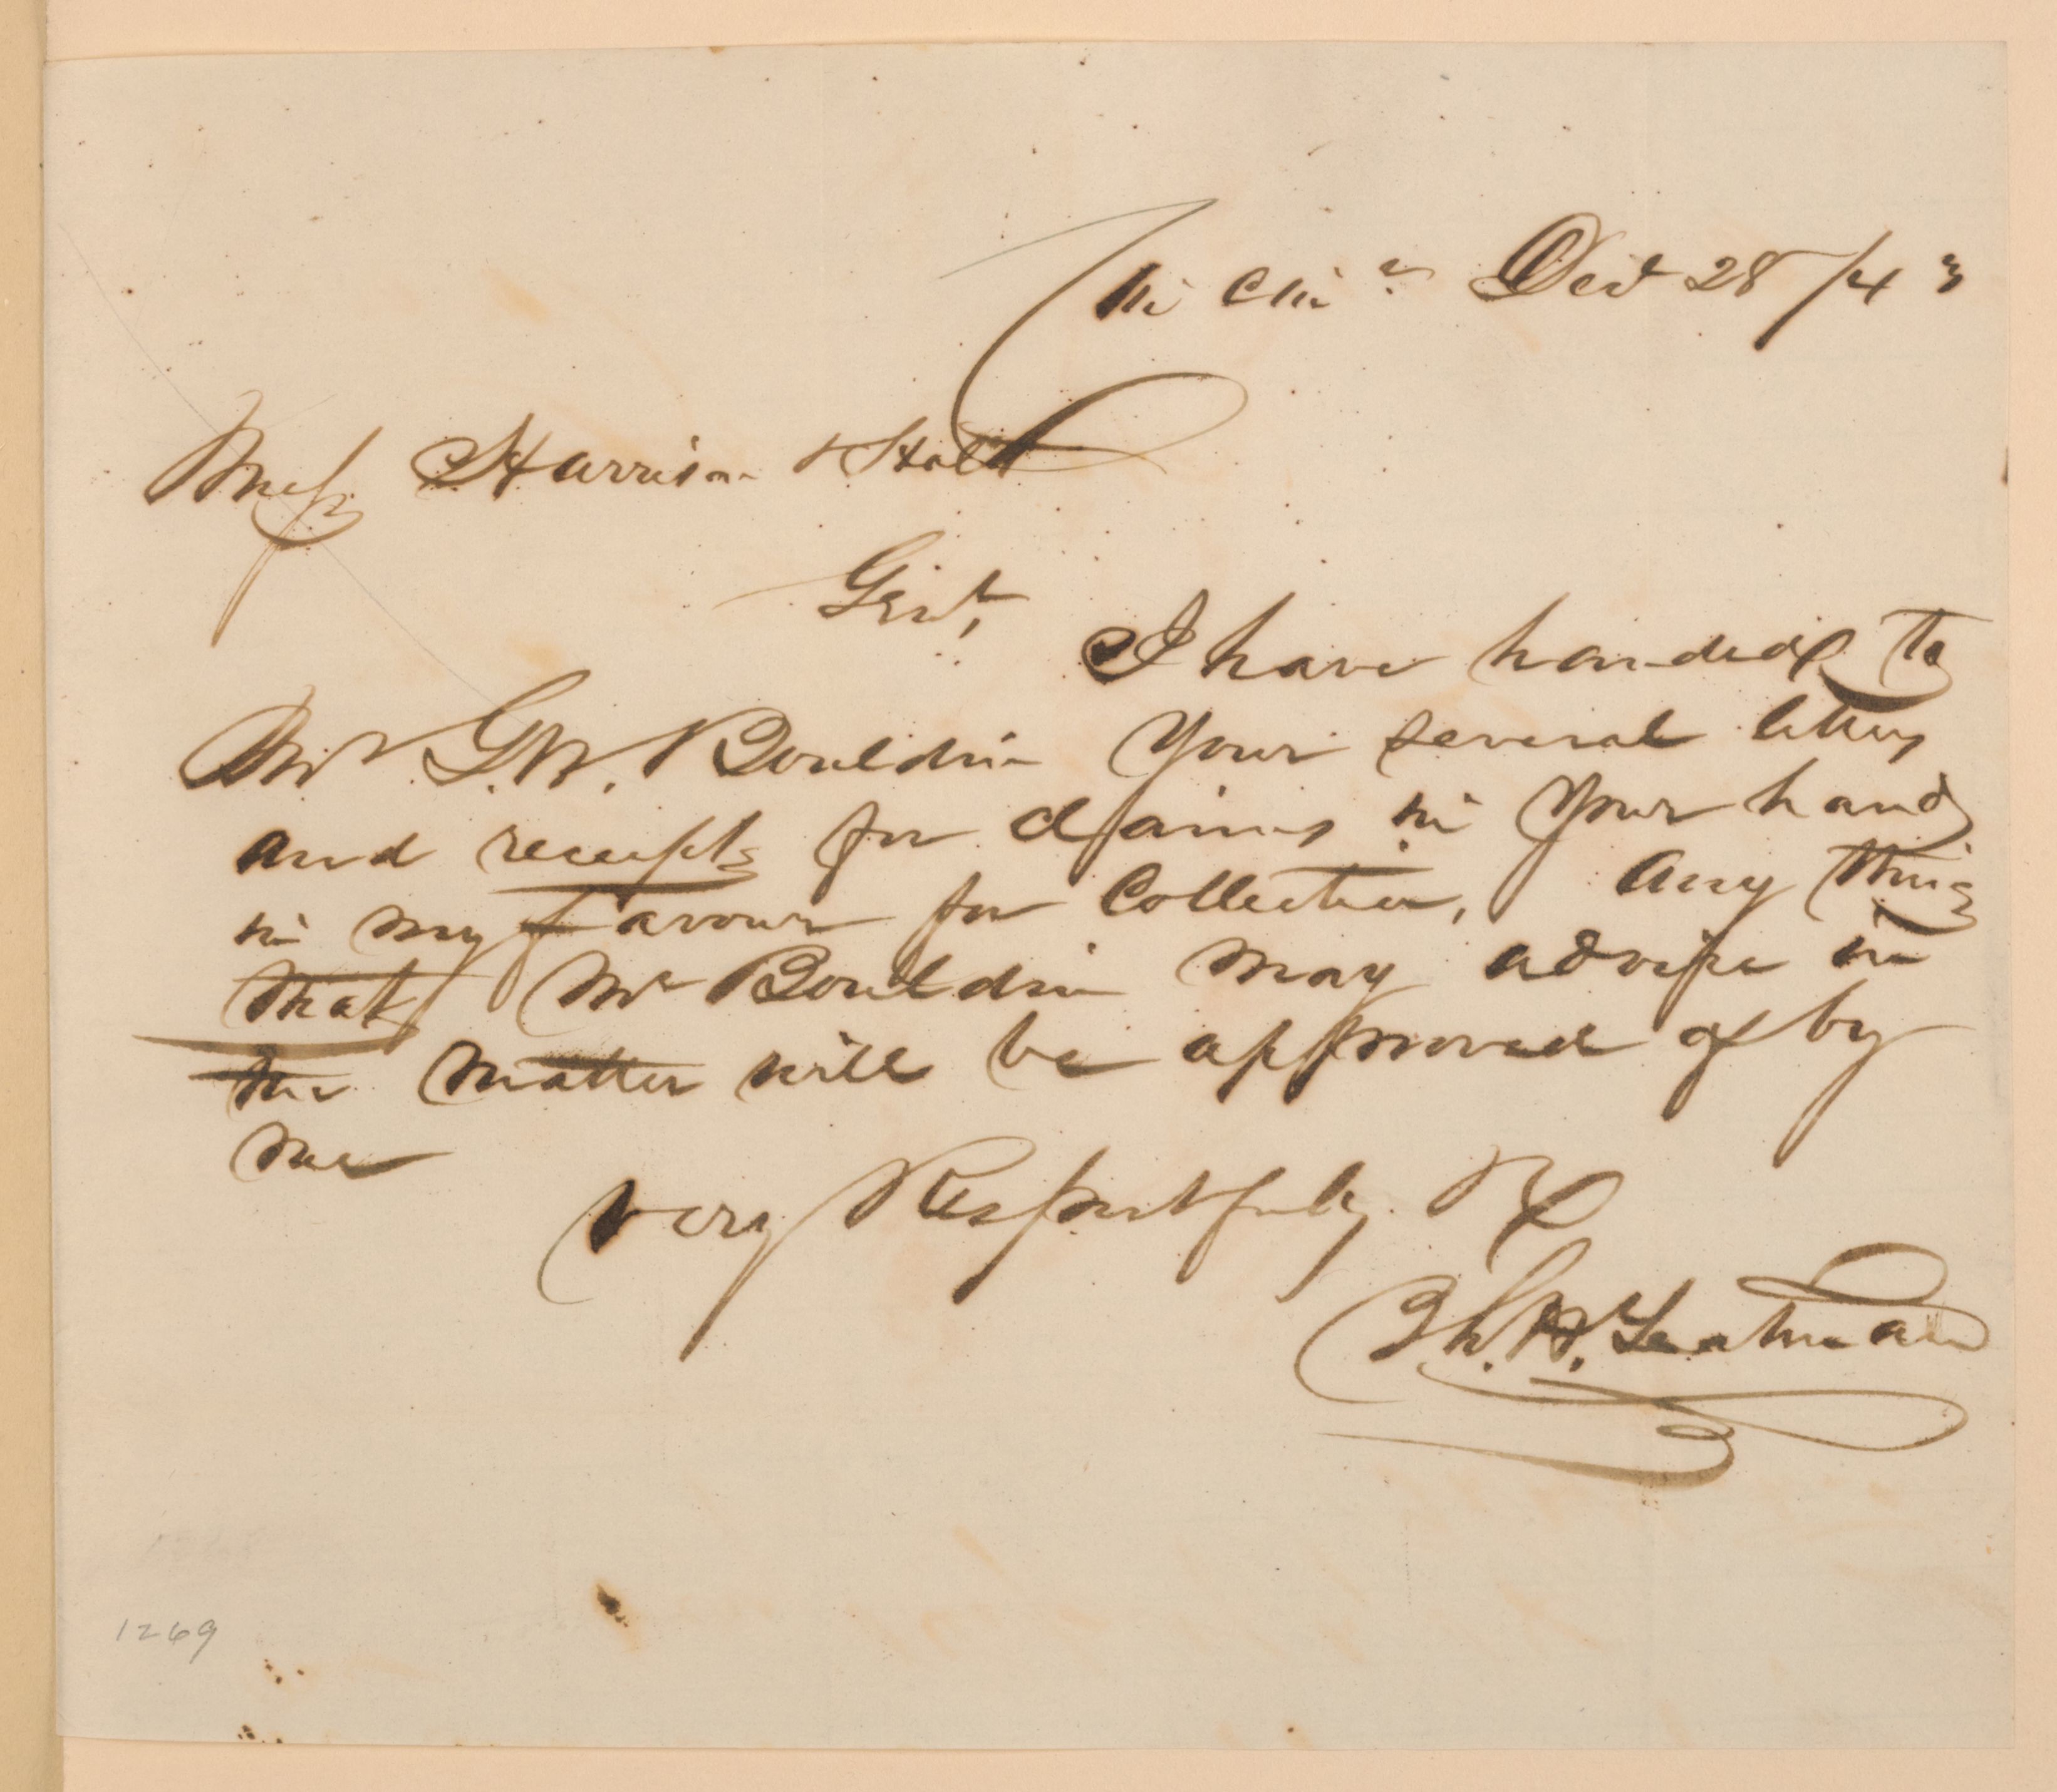 Dect 28 /43
Mess Harrison & Holt
Gent,
I have handed to
Mr G. W. Bouldin Your several letters
and receipts for claims in Your hands
in my favour for Collection, Any thing
that Mr Bouldin may advise in
the matter will be approved of by
me
Very Respectfuly &c
Th. H. Yeatman
1269